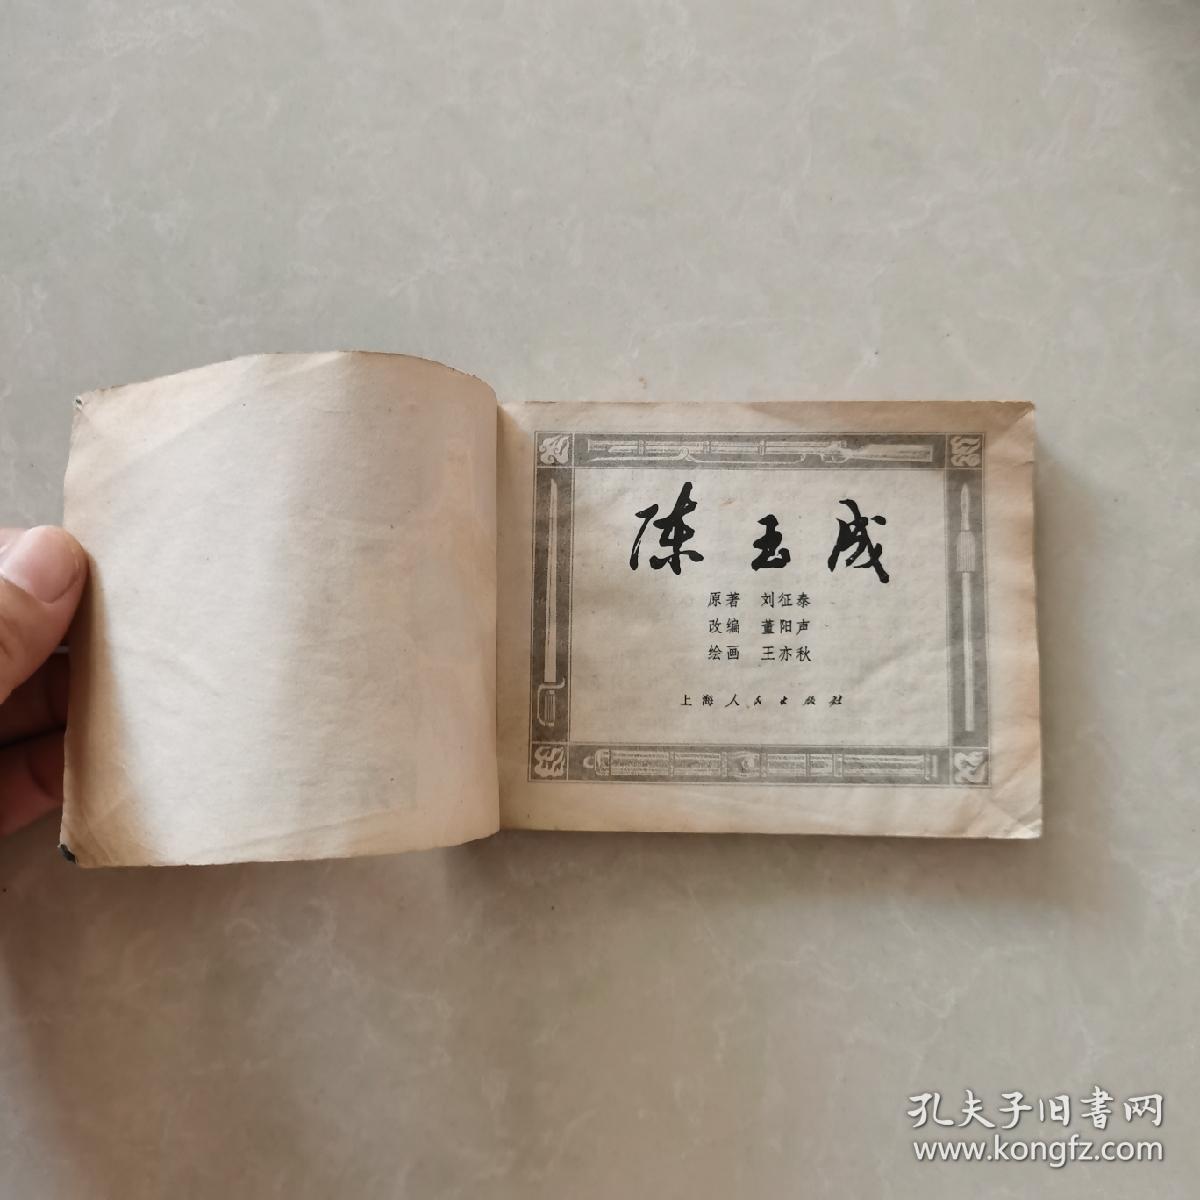 陈玉成
原著 刘征泰
改编 董阳声
绘画 王亦秋
上海人民出版社
孔夫子旧书网
www.kongfz.com